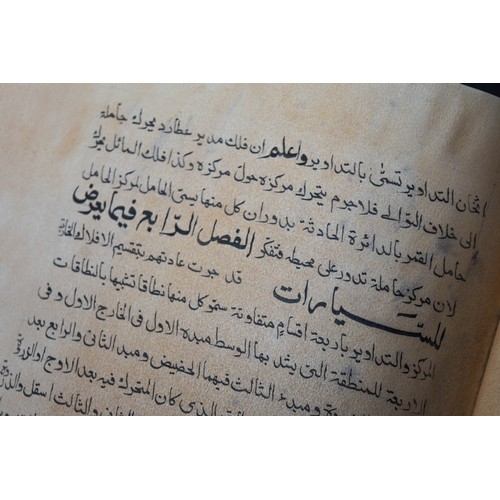 اثخان التداوير تسمى بالتداوير واعلم ان فلك مدير عطارد يحرك حاملة
الى خلاف التوالى فلاجرم يتحرك مركزه حول مركزه وكذا فلك المائل يحرك
حامل القمر بالدائرة الحادثة بدوران كل منها سمى الحامل لمركز الحامل
لان مركز حاملة تدور على محيطه فتفكر الفصل الرابع فيما يعرض
للسيارات قد جرت عادتهم بتقسيم الافلاك الخارجة
المركز والتداوير باربعة اقسام متفاوتة سموا كل منها نطاقا تشبها بالنطاقات
الاربعة للمنطقة التى يشد بها الوسط مبدء الاول فى الخارج الاول وفى
ومبدء الثالث فيهما الحضيض ومبدء الثانى والرابع بعد
الذى كان المتحرك فيه بعد الاوج او الذروة
والثالث اسفل